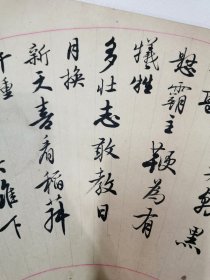 黑
悬霸主鞭為有
犧牲
多壮志敢教日
月换
新天喜看稻菽
千重
下